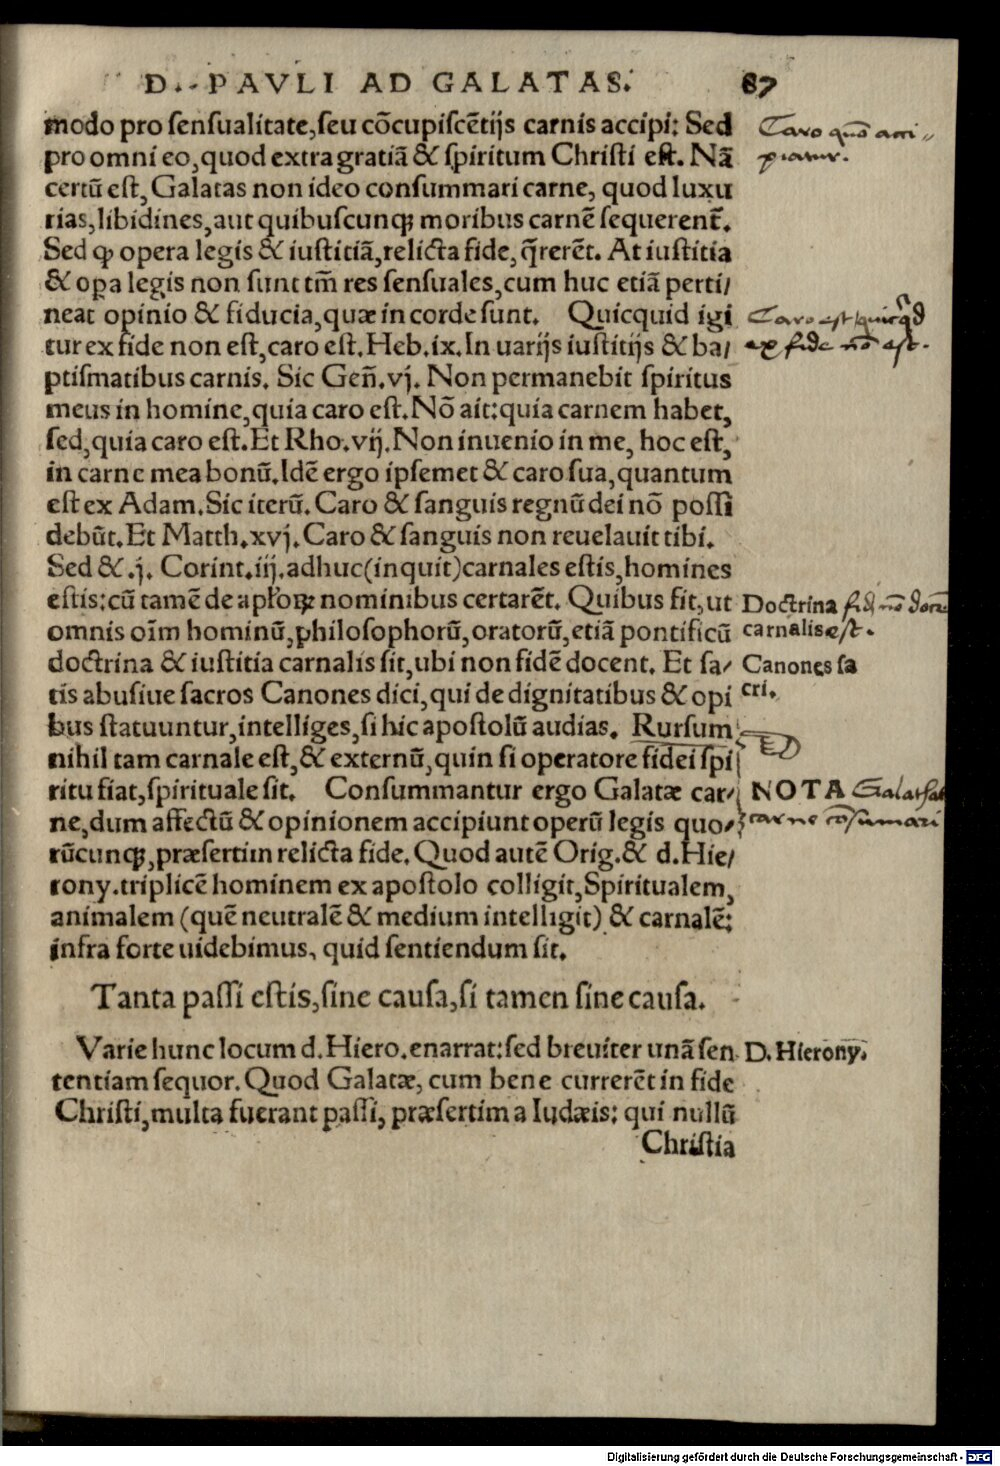 D. PAVLI AD GALATAS. 87
modo pro sensualitate, seu cõcupiscẽtijs carnis accipi: Sed
pro omni eo, quod extra gratiã & spiritum Christi est. Nã
certũ est, Galatas non ideo consummari carne, quod luxu
rias, libidines, aut quibuscunqꝫ moribus carnẽ sequerent̃.
Sed ꝙ opera legis & iustitiã, relicta fide, q̃rerẽt. At iustitia
& oꝑa legis non sunt tm̃ res sensuales, cum huc etiã perti/
neat opinio & fiducia, quæ in corde sunt. Quicquid igi
tur ex fide non est, caro est. Heb. ix. In uarijs iustitijs & ba/
ptismatibus carnis. Sic Geñ. vj. Non permanebit spiritus
meus in homine, quia caro est. Nõ ait: quia carnem habet,
sed, quia caro est. Et Rho. vij. Non inuenio in me, hoc est,
in carne mea bonũ. Idẽ ergo ipsemet & caro sua, quantum
est ex Adam. Sic iterũ. Caro & sanguis regnũ dei nõ possi
debũt. Et Matth. xvj. Caro & sanguis non reuelauit tibi.
Sed & .j. Corint. iij. adhuc (inquit) carnales estis, homines
estis: cũ tamẽ de apłoꝝ nominibus certarẽt. Quibus fit, ut
omnis oĩm hominũ, philosophorũ, oratorũ, etiã pontificũ
doctrina & iustitia carnalis sit, ubi non fidẽ docent. Et sa/
tis abusiue sacros Canones dici, qui de dignitatibus & opi
bus statuuntur, intelliges, si hic apostolũ audias. Rursum
nihil tam carnale est, & externũ, quin si operatore fidei spi
ritu fiat, spirituale sit. Consummantur ergo Galatæ car/
ne, dum affectũ & opinionem accipiunt operũ legis quo/
rũcunqꝫ, præsertim relicta fide. Quod autẽ Orig. & d. Hie/
rony. triplicẽ hominem ex apostolo colligit, Spiritualem,
animalem (quẽ neutralẽ & medium intelligit) & carnalẽ:
infra forte uidebimus, quid sentiendum sit.
Tanta passi estis, sine causa, si tamen sine causa.
Varie hunc locum d. Hiero. enarrat: sed breuiter unã sen
tentiam sequor. Quod Galatæ, cum bene currerẽt in fide
Christi, multa fuerant passi, præsertim a Iudæis: qui nullũ
Christia
Caro quõ acci
piatur.
Caro est quicq̃d
ex fide nõ est.
Doctrina fidẽ nõ docens
carnalis est.
Canones sa
cri.
NOTA Galathas
carne cõsumari
D. Hierony.
Digitalisierung gefördert durch die Deutsche Forschungsgemeinschaft - DFG